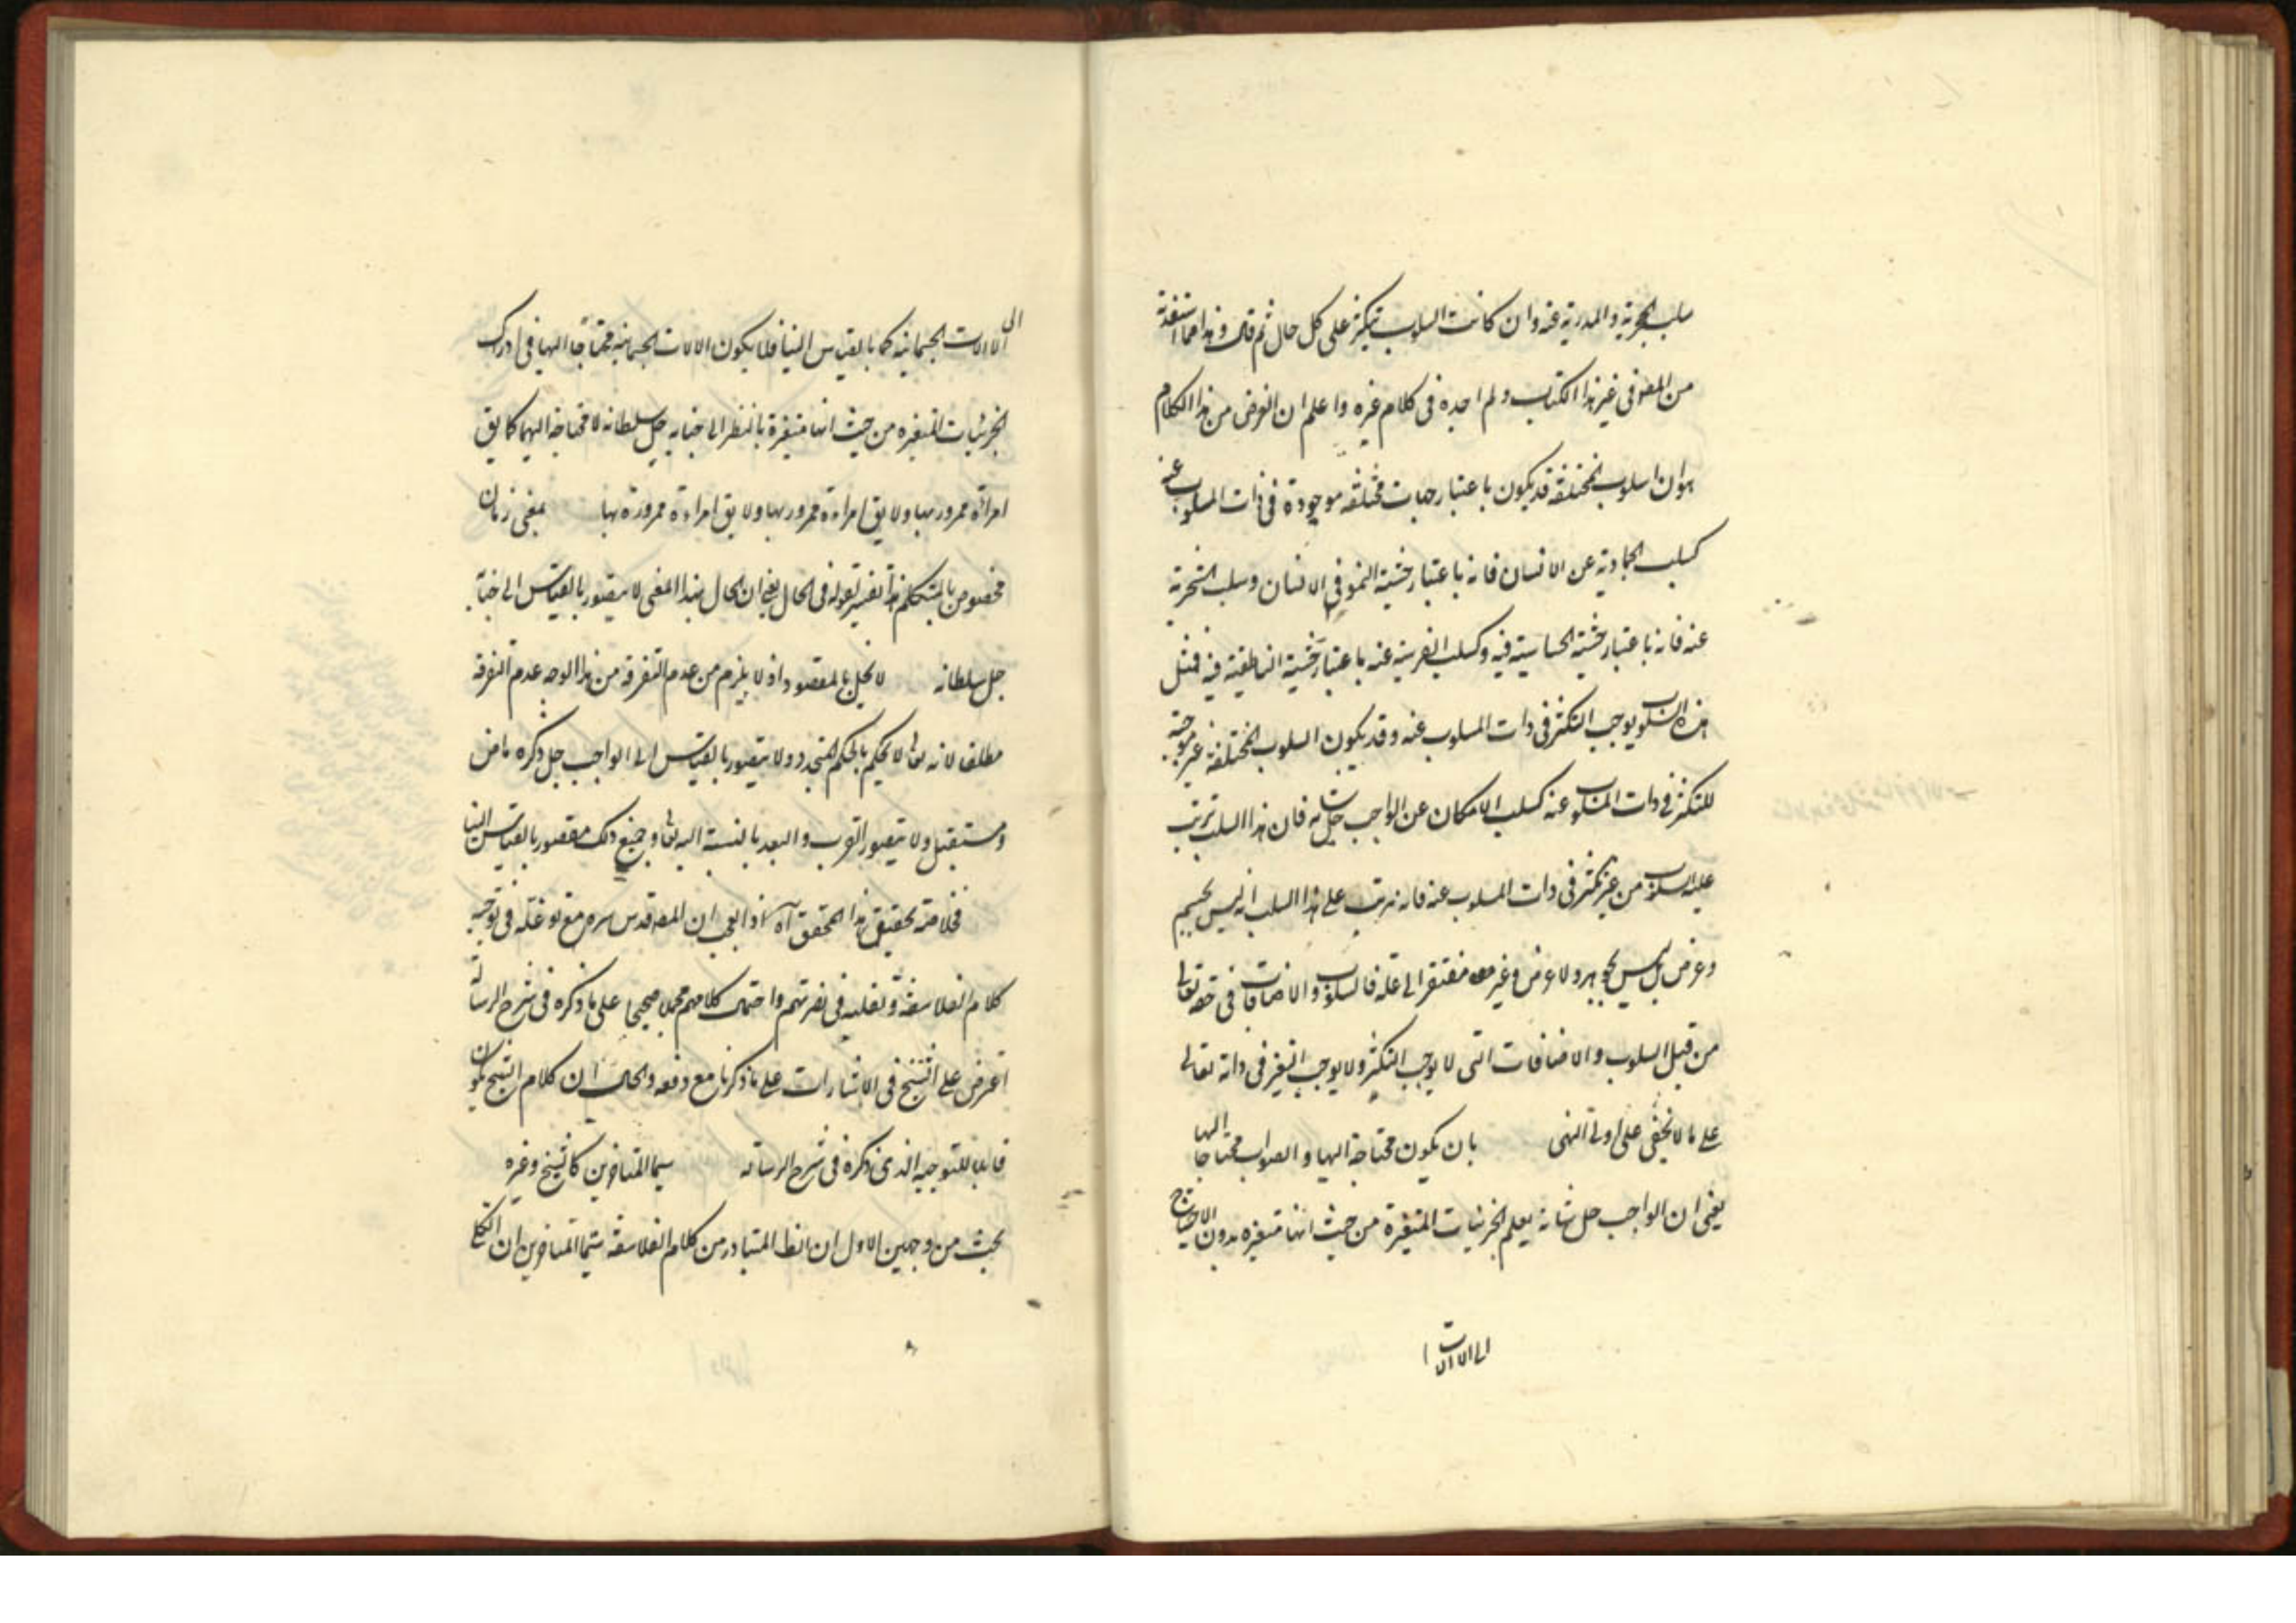 سلب الحجرية والمدرية عنه وان كانت السلوب تتكثر على كل حال ثم قال وهذا مما استفدته
من المص فى غير هذا الكتاب ولم اجده فى كلام غيره واعلم ان الغرض من هذا الكلام
هو ان السلوب المختلفة قد يكون باعتبار جهات مختلفه موجودة فى ذات المسلوب عنه
كسلب الجمادية عن الانسان فانه باعتبار حيثية النمو فى الانسان وسلب الشجرية
عنه فانه باعتبار حيثية الحساسية فيه وكسلب الفرسية عنه باعتبار حيثية الناطقية فيه فمثل
هذه السلوب يوجب التكثر فى ذات المسلوب عنه وقد يكون السلوب المختلفة غير موجبة
للتكثر فى ذات المسلوب عنه كسلب الامكان عن الواجب جل شانه فان هذا السلب ترتب
عليه السلوب من غير تكثر فى ذات المسلوب عنه فانه ترتب على هذا السلب انه ليس بجسم
وعرض بل ليس بجوهر ولا عرض وغير مفتقر الى علة فالسلوب والاضافات فى حقه تعالى
من قبيل السلوب والاضافات التى لا يوجب التكثر ولا يوجب التغير فى ذاته تعالى
على ما لا يخفى على اولى النهى بان يكون محتاجة اليها والصواب محتاجا اليها
يعنى ان الواجب جل شانه يعلم الجزئيات المتغيرة من حيث انها متغيره بدون الاحتياج
الى الالات
الى الالات الجسمانيه كما بالقياس الينا فلا يكون الالات الجسمانيه محتاجا اليها فى ادراك
الجزئيات المتغيره من حيث انها متغيرة بالنظر الى جنابه جل سلطانه لا محتاجة اليها كما يق
امراة ممرور بها ولا يق امراءة ممرور بها ولا يق امراءة ممرورة بها بمعنى زمان
مخصوص بالمتكلم هذا تفسير لقوله فى الحال يعنى ان الحال بهذا المعنى لا يتصور بالقياس الى جنابه
جل سلطانه لا يخل بالمقصود اذ لا يلزم من عدم التفرقة من هذا الوجه عدم التفرقة
مطلقا لانه تعالى لا يحكم بالحكم المتجدد ولا يتصور بالقياس الى الواجب جل ذكره ماض
ومستقبل ولا يتصور القرب والبعد بالنسبة اليه تعالى وجميع ذلك متصور بالقياس الينا
فخلاصة تحقيق هذا المحقق آه اذ العجب ان المص قدس سره مع توغله فى توجيه
كلام الفلاسفة وتصلبه فى نصرتهم واحتمال كلامهم محملا صحيحا على ما ذكره فى شرح الرسالة
اعترض على الشيخ فى الاشارات على ما ذكرنا مع دفعه والحال ان كلام الشيخ يكون
قابلا للتوجيه الذى ذكره فى شرح الرسالة سيما المتاخرين كالشيخ وغيره
بحث من وجهين الاول ان الظ المتبادر من كلام الفلاسفة سيما المتاخرين ان